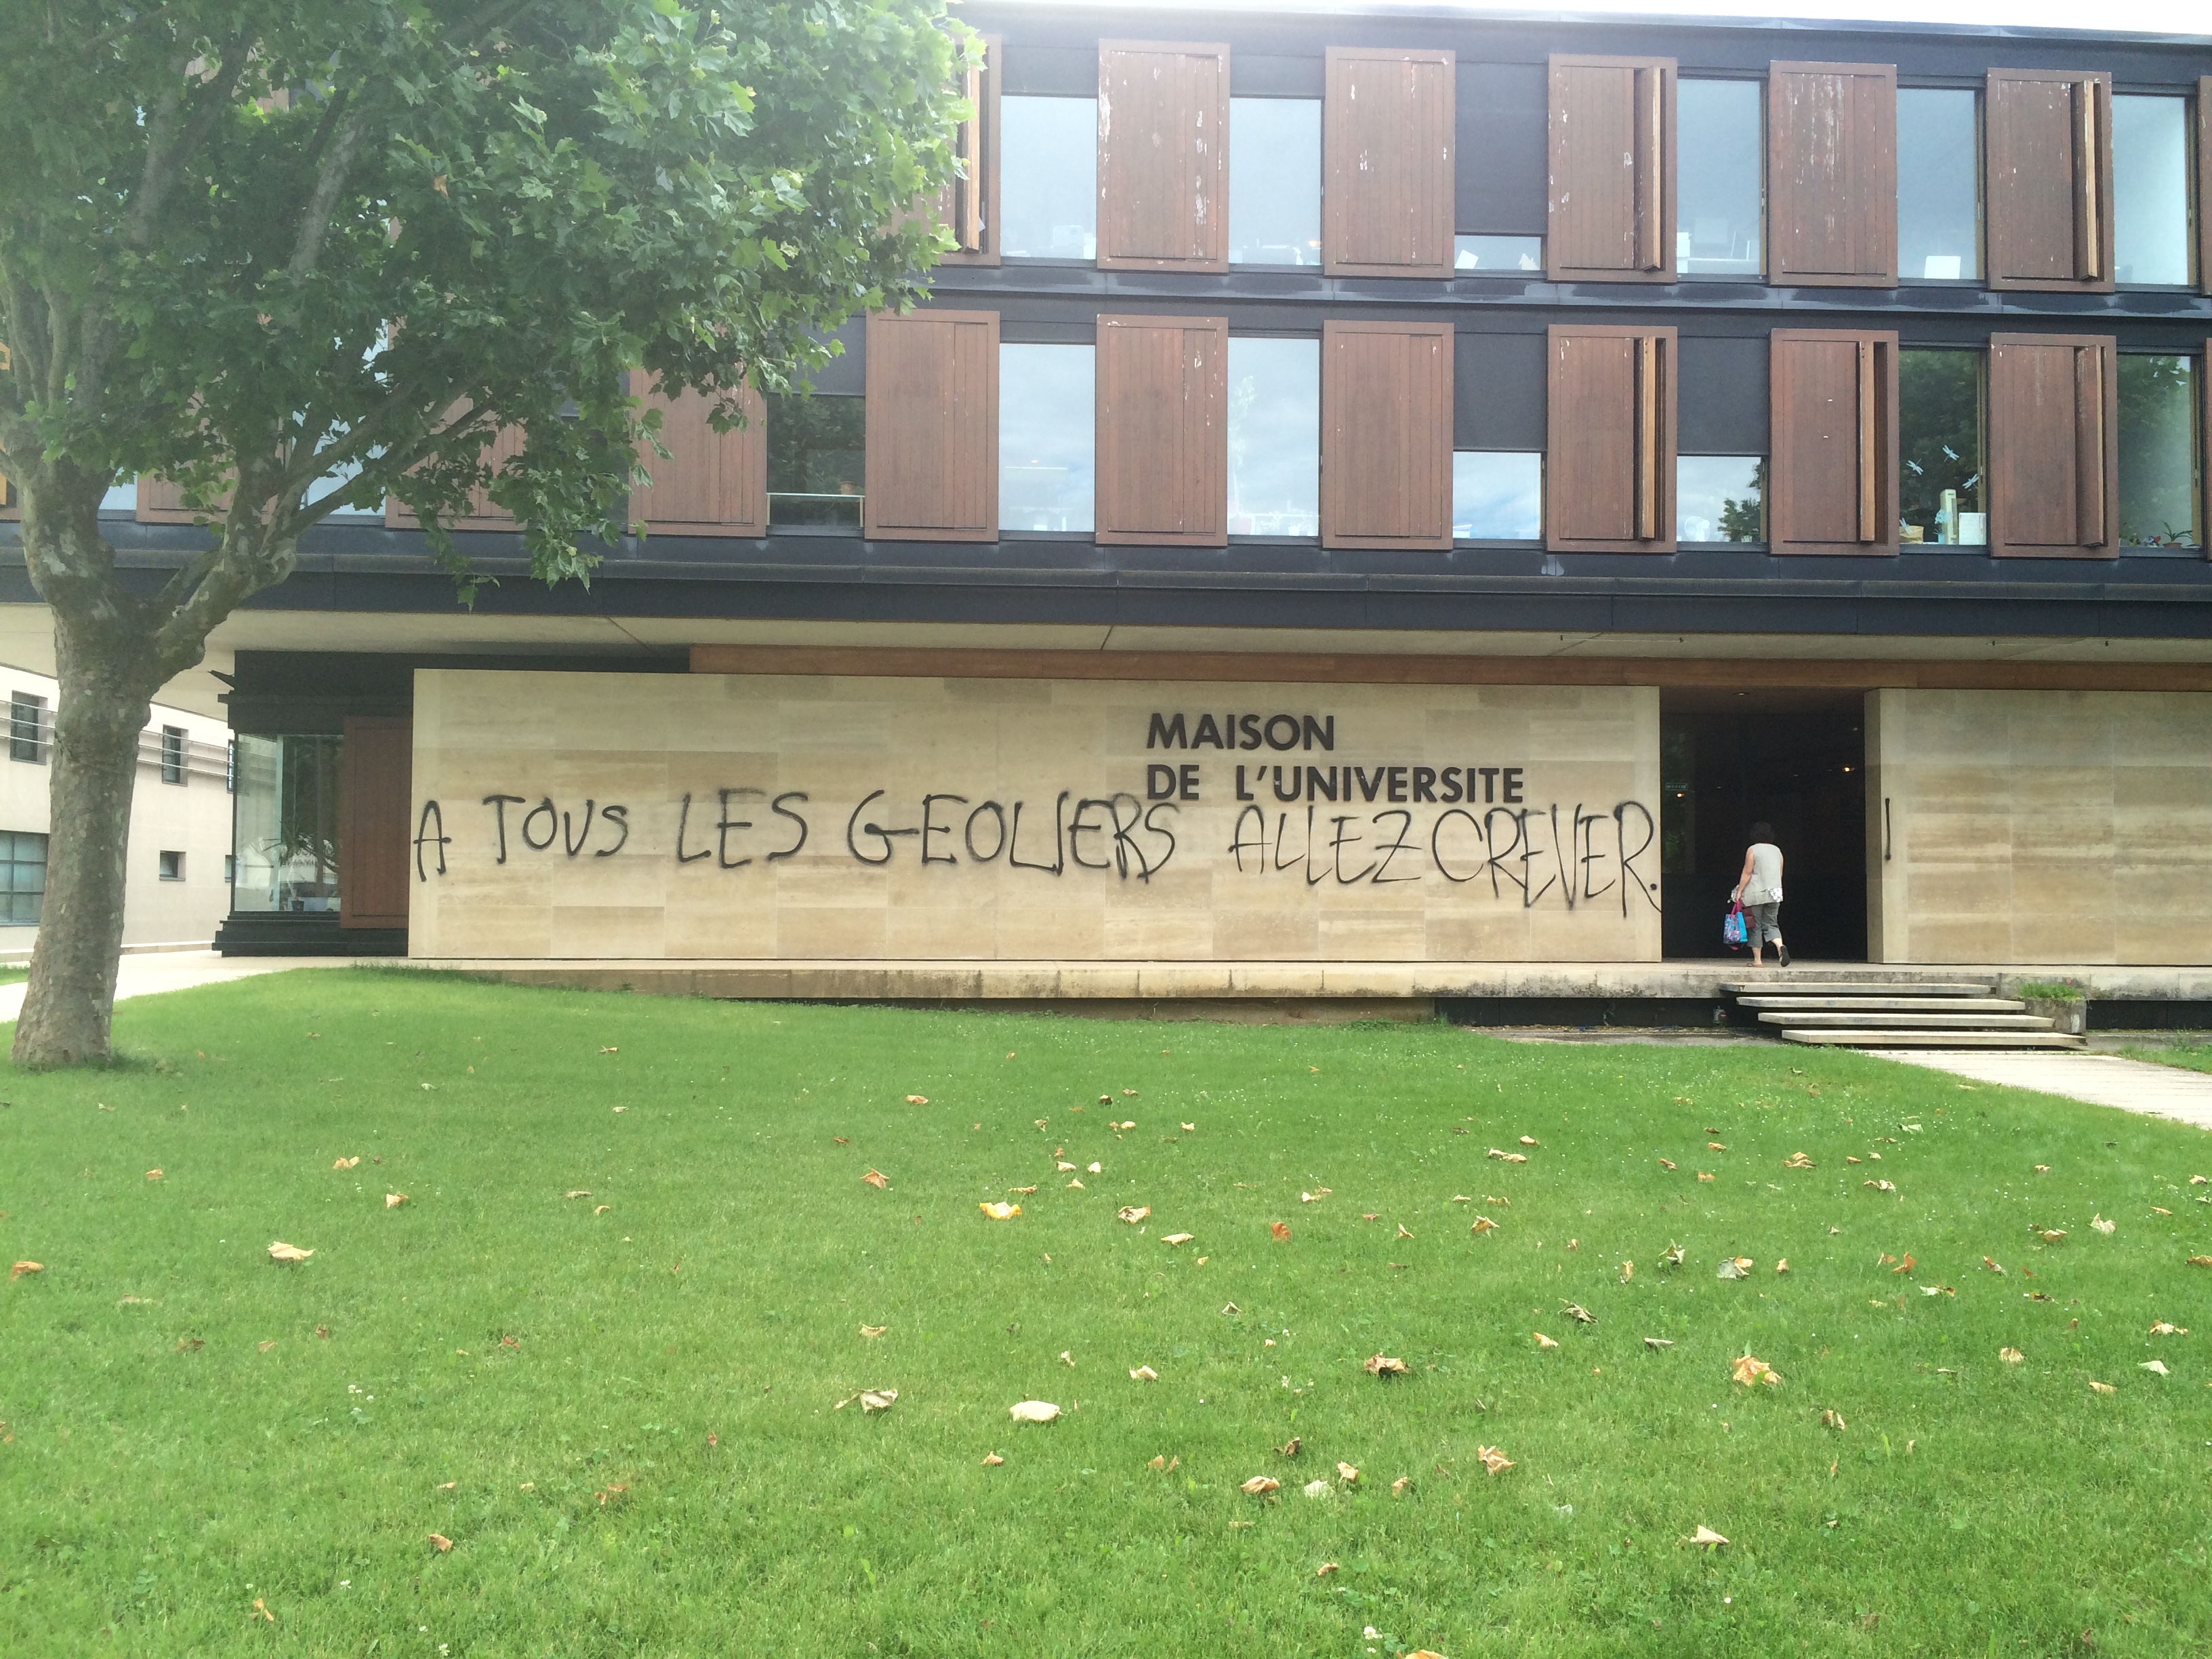 MAISON
DE L'UNIVERSITE
A TOUS LES GEOLIERS ALLEZ CREVER. !